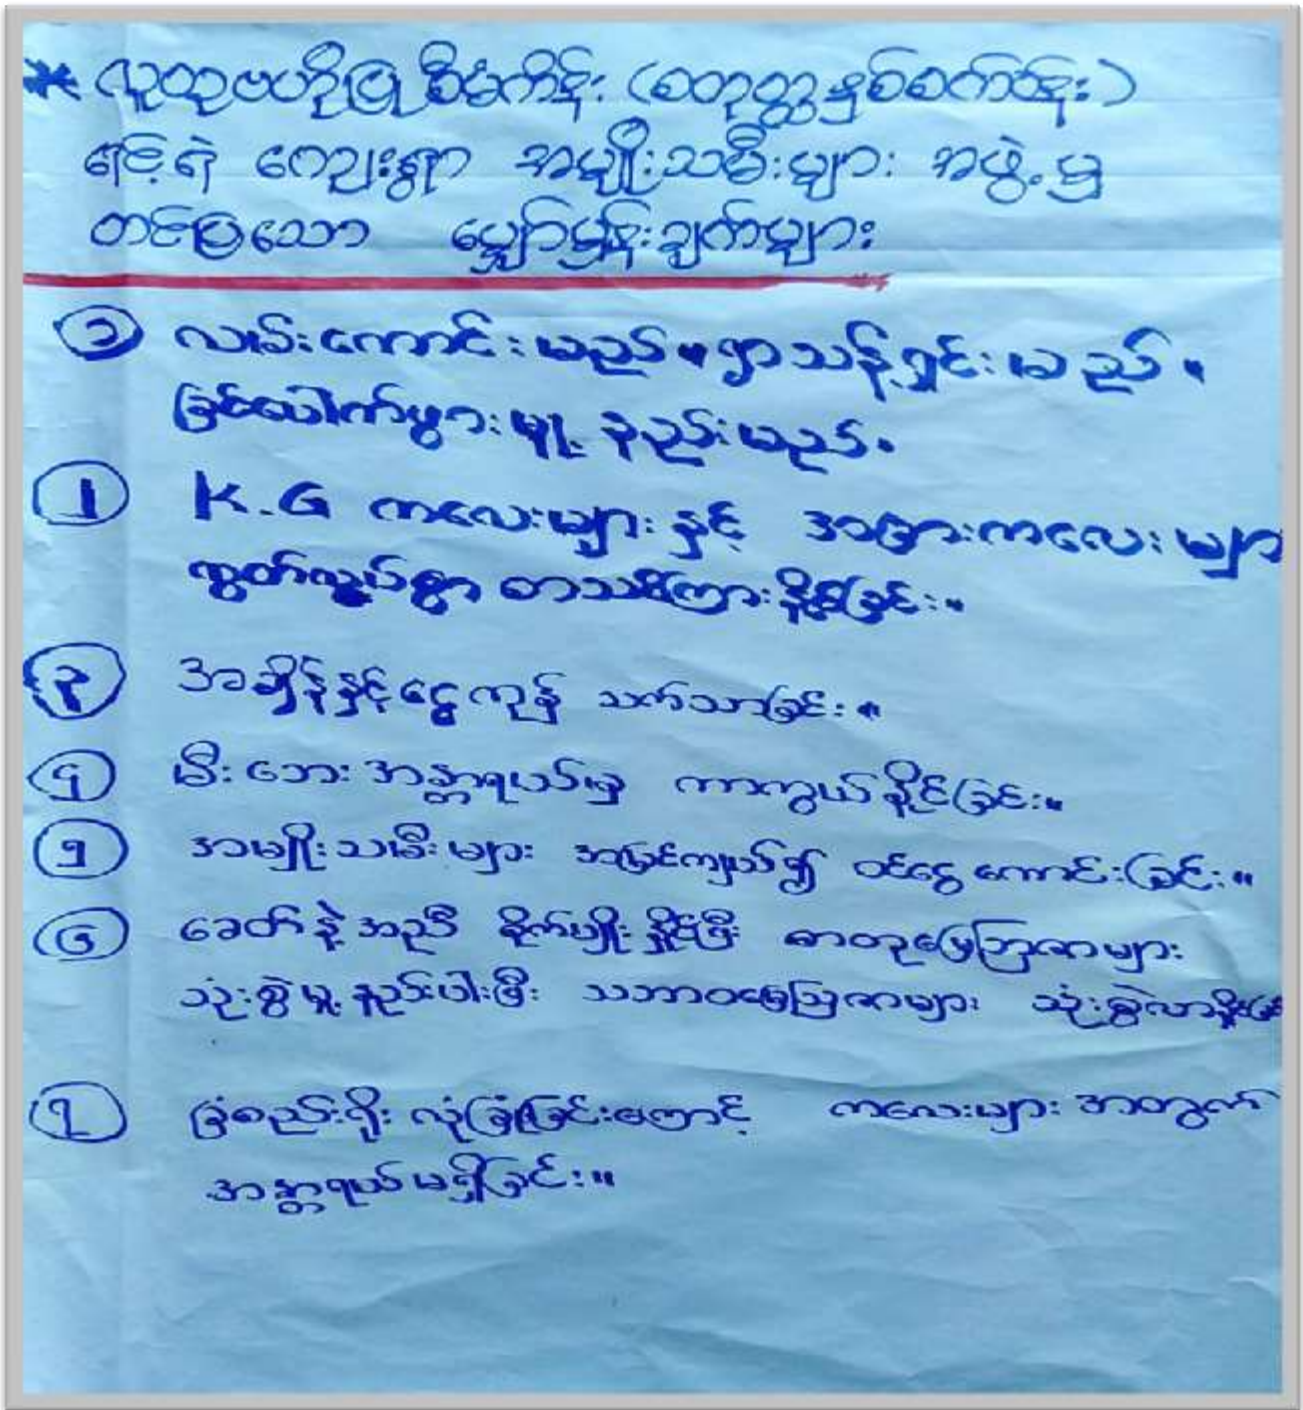 * လူထုဗဟိုပြု စီမံကိန်း (စတုတ္ထနှစ်စက်ဝန်း)
ရင့်ရဲ ကျေးရွာ အမျိုးသမီးများ အဖွဲ့မှ
တင်ပြသော မျှော်မှန်းချက်များ
၁ လမ်းကောင်းမည်။ ရွာသန့်ရှင်းမည်။
ခြင်ပေါက်ဖွားမှု နည်းမည်။
၂ K.G ကလေးများနှင့် အခြားကလေးများ
လွတ်လပ်စွာ စာသင်ကြားနိုင်ခြင်း။
၃ အချိန်နှင့်ငွေကုန် သက်သာခြင်း။
၄ မီးဘေးအန္တာရယ်မှ ကာကွယ်နိုင်ခြင်း။
၅ အမျိုးသမီးများ အမြင်ကျယ်၍ ဝင်ငွေကောင်းခြင်း။
၆ ခေတ်နဲ့အညီ စိုက်ပျိုးနိုင်ပြီး ဓာတုမြေဩဇာများ
သုံးစွဲမှုနည်းပါးပြီး သဘာဝမြေဩဇာများ
၇ ခြံစည်းရိုး လုံခြုံခြင်းကြောင့် ကလေးများအတွက်
အန္တာရယ်မရှိခြင်း။